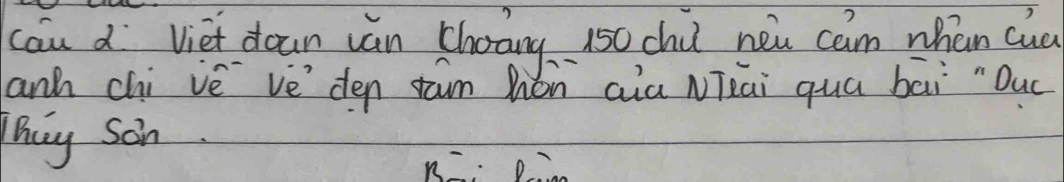 Câu 2: Viết đoạn văn khoảng 150 chữ nêu cảm nhận của
anh chị về vẻ đẹp tâm hồn của NTrãi qua bài "Dục
Thúy Sơn.
Bài làm